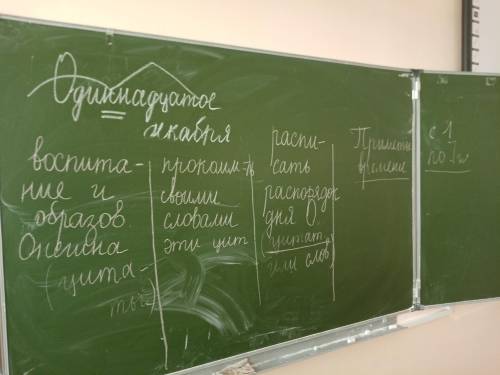 Одиннадцатое
декабря
воспита-
ние и
образов
Онегина
(цита-
ты)
прокомм-ть
своими
словами
эти цит
распи-
сать
распорядок
дня О.
(цитат.
или слов)
Приметы
времени
с 1
по 7 гл